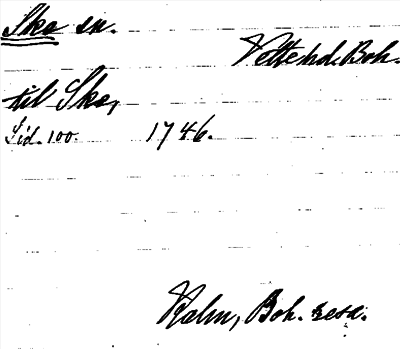 Ska sn.
Vette hd. Boh.
til Ska,
Sid. 100. 1746.
Kalm, Boh. resa.